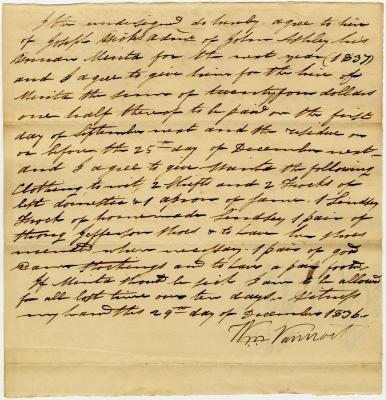 I the undersigned do hereby agree to hire
of Joseph Dicks Admr. of John Ashley his
Woman Merita for the next year (1837)
and I agree to give him for the hire of
Merita the sum of twenty four dollars
one half thereof to be paid on the first
day of September next and the residue on
or before the 25th day of December next
and I agree to give Merita the following
Clothing to wit, 2 Shifts and 2 Frocks of
domestic & 1 apron of same 1 Lindsey
Frock of homemade Lindsey 1 pair of
strong Jefferson Shoes & to have her shoes
mended when necessary 1 pair of good
yarn Stockings and to have a pair footed
If Merita should be sick I am to be allowed
for all lost time over ten days. Witness
my hand this 29th day of December 1836.
Wm.